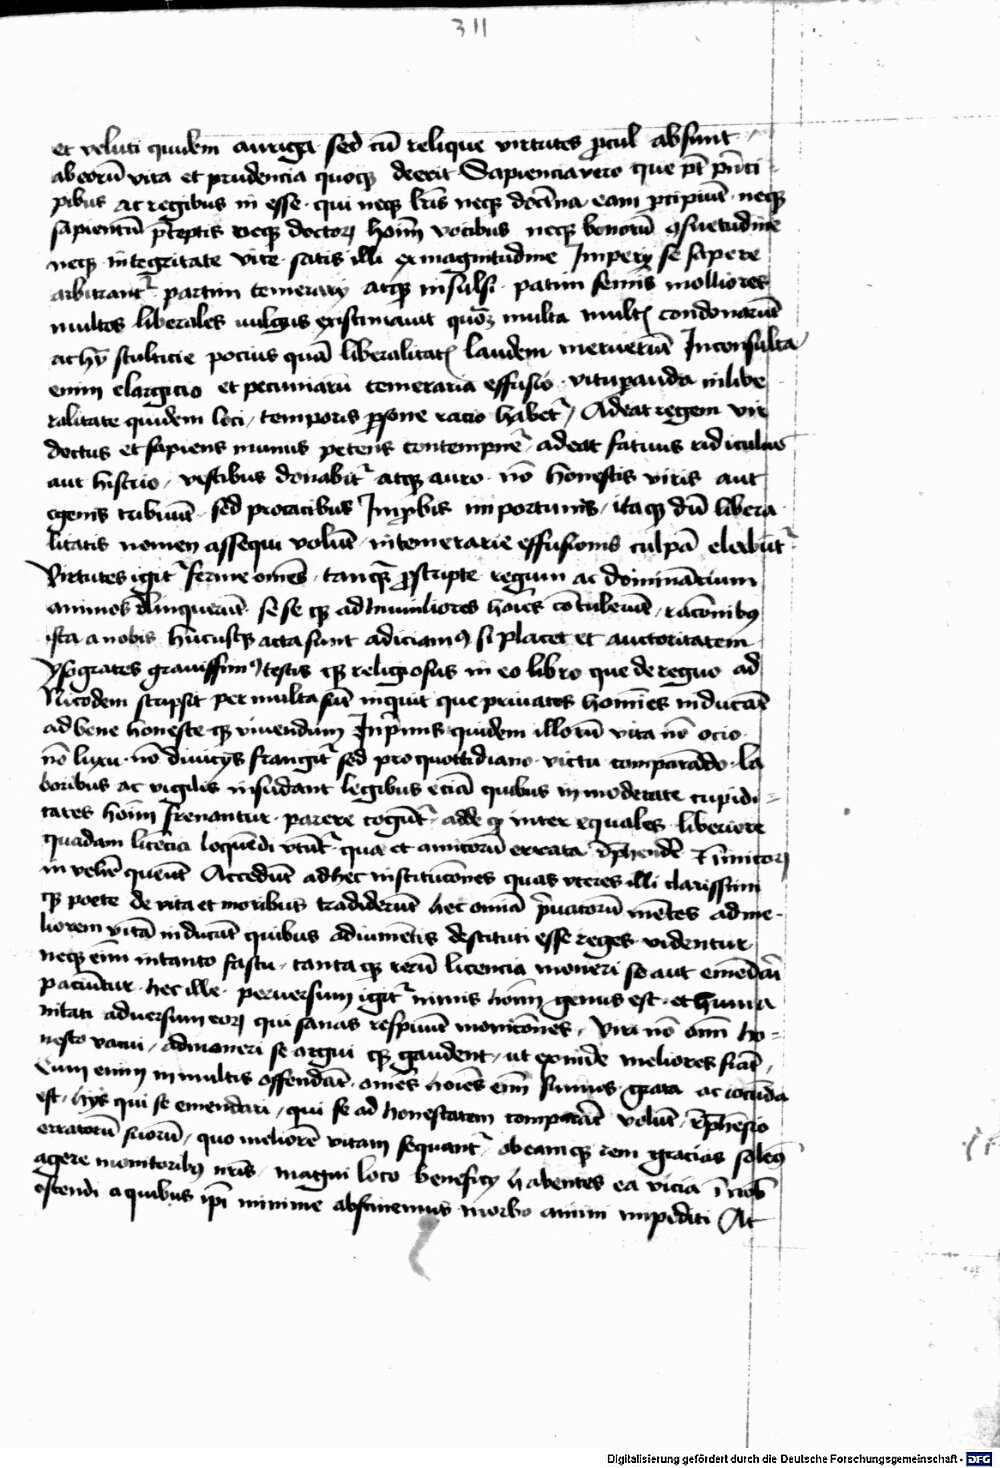 311
et veluti quidem auriga sed cū relique virtutes ꝓcul absunt
ab eorū vita et prudencia quoqꝫ deerit Sapiencia vero que pt̄ pn̄ci
pibus ac regibus in esse · qui neqꝫ lr̄is neqꝫ doct̄ina eam ꝑcipiūt · neqꝫ
sapientū p̄ceptis neqꝫ doctoꝝ hoīm vocibus neqꝫ bonorū ꝯsuetudine
neqꝫ integritate vite · satis illi ex magnitudine Imperij se sapere
arbitrant᷑ · partim temerarij atqꝫ insulsi · patim semis molliores
multos liberales vulgus existimavit quoꝝ multa mult condonarūt
ac hij stulticie pocius quā liberalitat laudem meruerūt Inconsulta
enim elargicio et pecuniarū temeraria effusio vitupanda in libe
ralitate quidem loci / temporis ꝑsone racio habet᷑ / Adeat regem vir
doctus et sapiens munus petens contempnet᷑ · adeat fatuus ridiculus
aut histrio / vestibus donabit᷑ atqꝫ auro · nō honestis viris aut
egenis tribuūt · sed procacibus Impbis importunis / itaqꝫ dū libera
litatis nomen assequi volūt in temerarie effusionis culpā elabūt᷑
Virtutes igit᷑ ferme om̄es · tanqꝫ ꝓscripte regum ac dominancium
animos relinquerūt · sese qꝫ ad humiliores hoīes cōtulerūt / racōnibꝫ
ista a nobis hucusqꝫ acta sunt adiciamꝰ si placet et auctoritatem
ysogrates grauissimꝰ testis qꝫ religiosus in eo libro que de regno ad
Nicodem scripsit permulta sūt inquit que priuatos homīes inducūt
ad bene honeste qꝫ viuendum Inprimis quidem illorū vita nō ocio
nō luxu · nō diuicijs frangit᷑ sed pro quottidiano victu comparādo la
boribus ac vigilijs insudant legibus eciā quibus inmoderate cupidi
tates hoīm frenantur parere cogūt᷑ · adde qꝫ inter equales liberiore
quadam licēcia loquēdi vtūt᷑ · qua et amicorū errata rephendē et īimicoꝝ
in vehē queūt Accedūt ad hec institucōnes quas vteres illi clarissimi
qꝫ poete de vita et moribus tradiderūt hec omīa p̄uatorū mētes ad me
liorem vitā inducūt quibus adiumētis destituti esse reges videntur
neqꝫ em̄ in tanto fastu · tanta qꝫ rerū licencia moneri se aut emēdari
paciūtur · hec ille · peruersum igit᷑ nimis hoīm genus est · et huma
nitati adversum eoꝝ qui sanas respuūt monicōnes · viri nō om̄i ho
nesto vacui / admoneri se argui qꝫ gaudent / ut exinde meliores fiāt /
Cum enim in multis offendāt om̄es hoīes em̄ sumus · grata ac iocūda
est · hijs qui se emendari / qui se ad honestatem comparāe volūt / rephēsio
erratorū suorū / quo meliorē vitam sequant᷑ ob eamqꝫ rem gracias solemꝰ
agere monitoribꝫ nr̄is / magni loco beneficij habentes ea vicia ī nobis
ostendi a quibus ip̄i minime abstinemus morbo animi impediti At
Digitalisierung gefördert durch die Deutsche Forschungsgemeinschaft - DFG